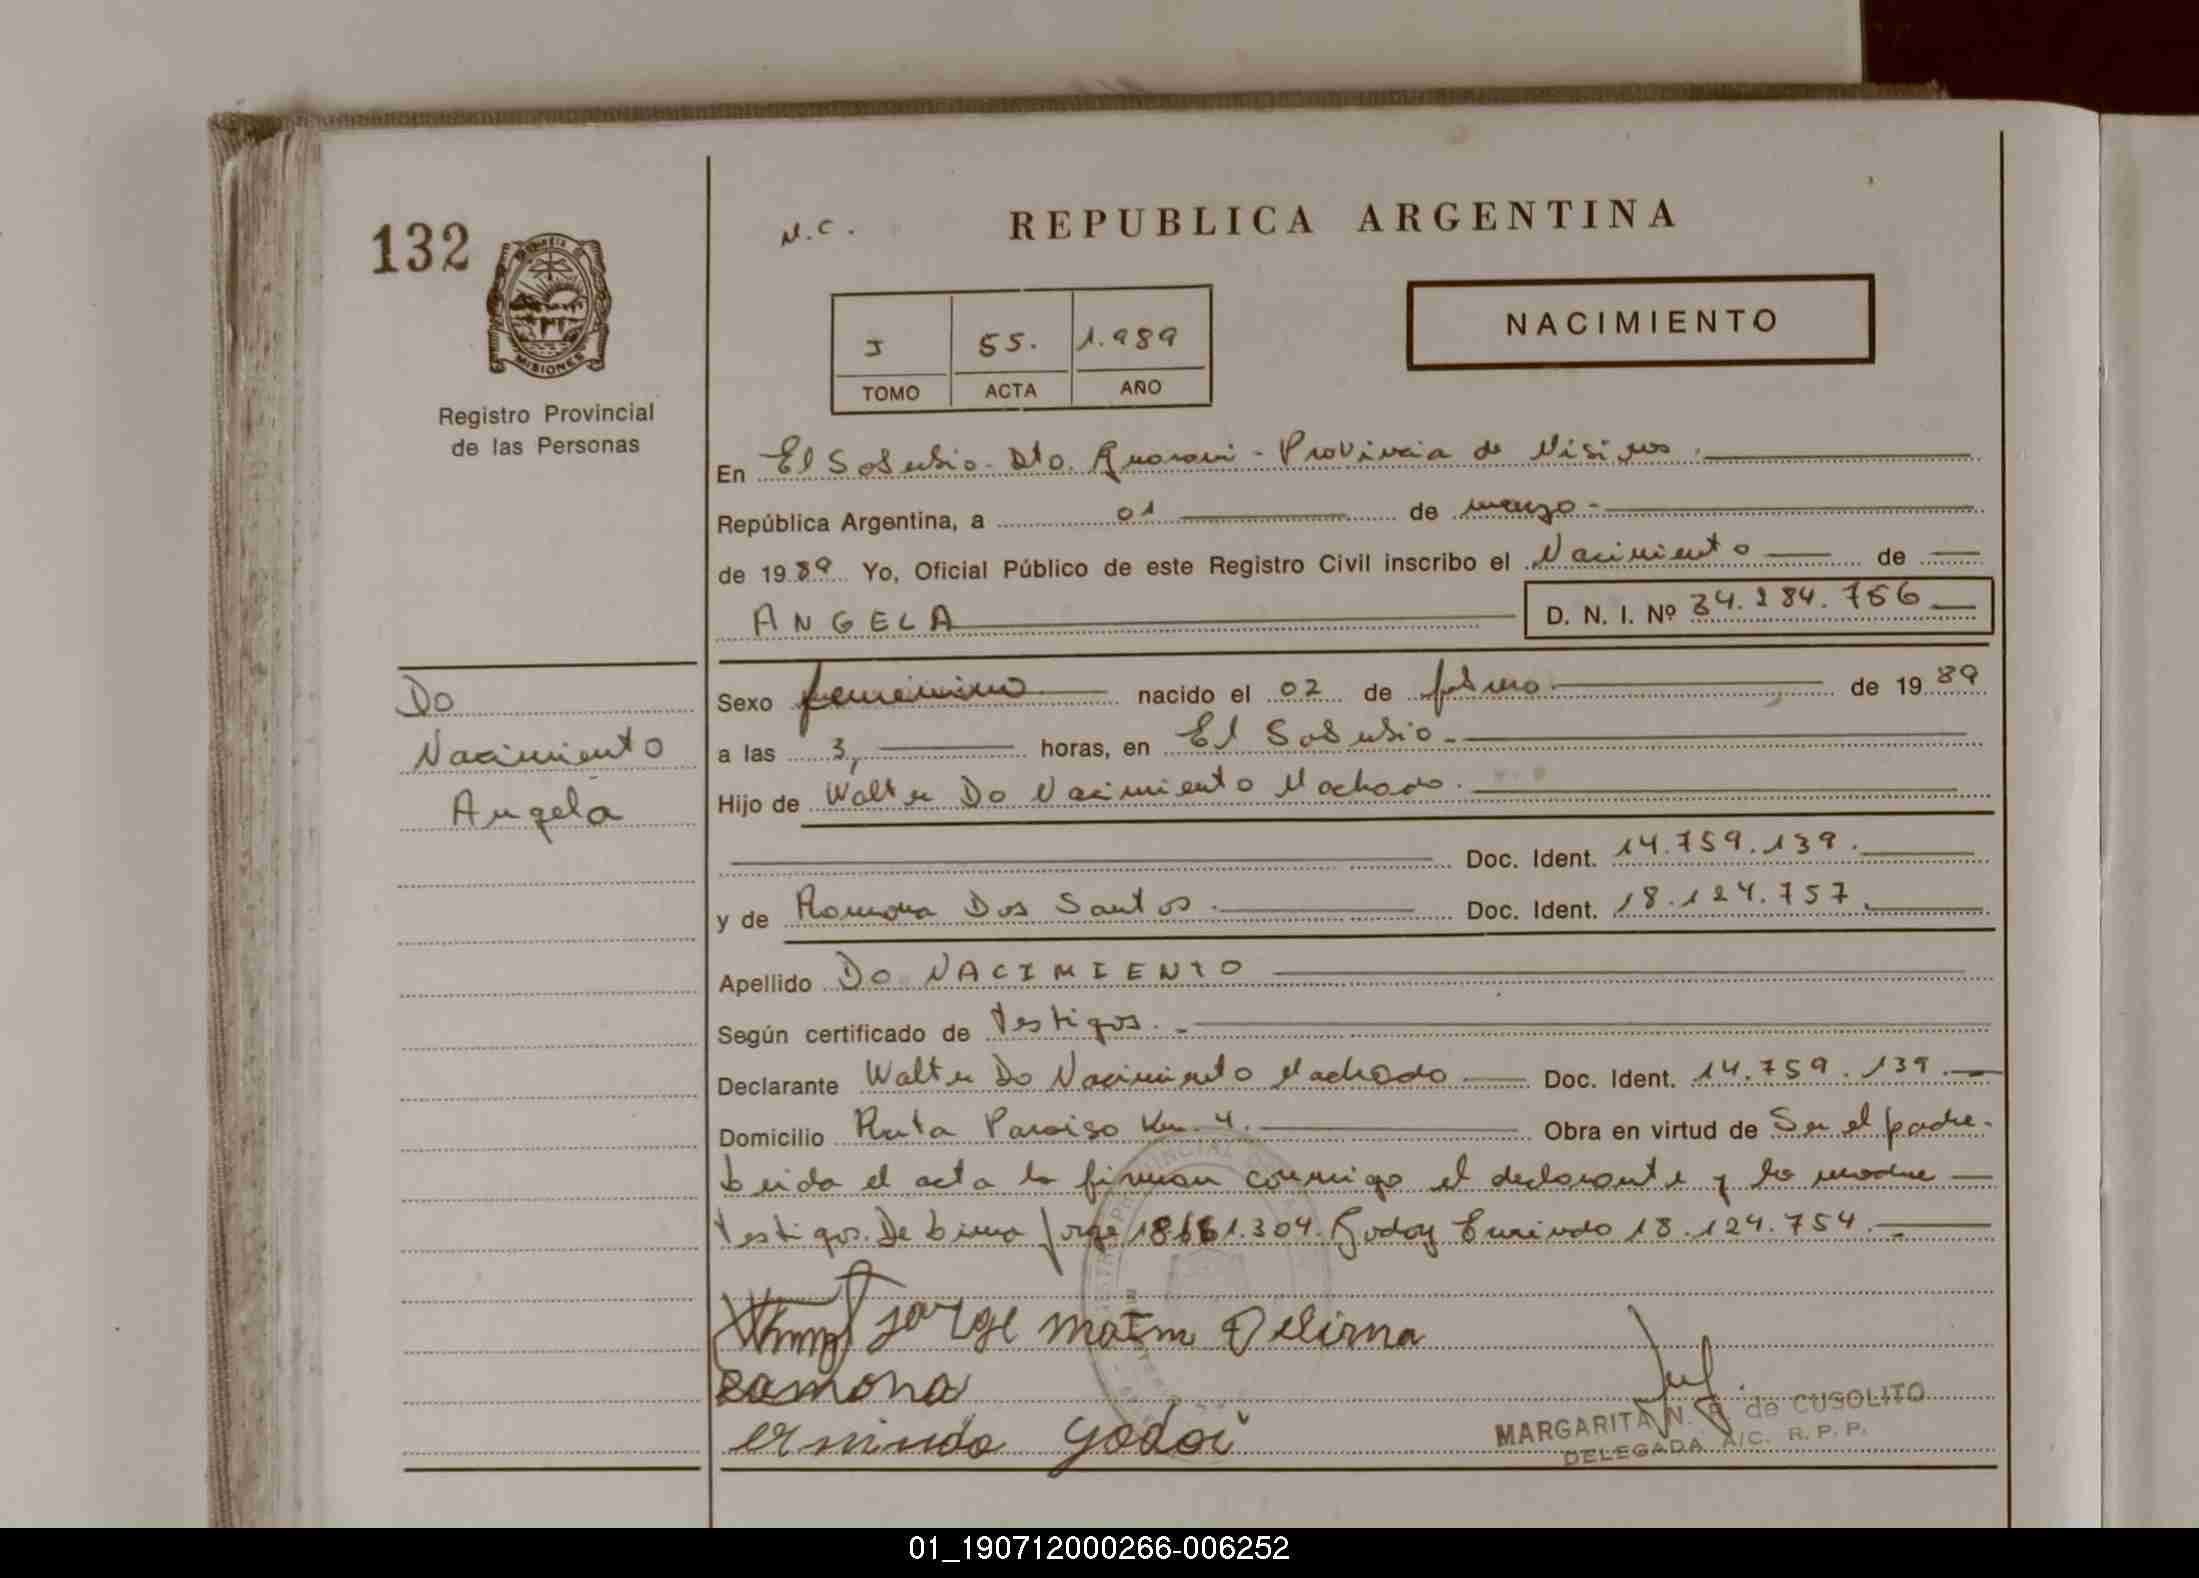 132
MISIONES
Registro Provincial
de las Personas
N.C.
REPUBLICA ARGENTINA
NACIMIENTO
I 55. 1.989
TOMO ACTA AÑO
En El Soberbio - Dto. Guarani - Provincia de Misiones.
República Argentina, a 01 de marzo -
de 1989 Yo, Oficial Público de este Registro Civil inscribo el Nacimiento de
ANGELA D. N. I. Nº 34.284.756
Do
Nacimiento
Angela
Sexo femenino nacido el 02 de febrero de 1989
a las 3, horas, en El Soberbio -
Hijo de Walter Do Nacimiento Machado.
Doc. Ident. 14.759.139.
y de Ramona Dos Santos. Doc. Ident. 18.124.757.
Apellido DO NACIMIENTO
Según certificado de testigos. -
Declarante Walter Do Nacimiento Machado Doc. Ident. 14.759.139.
Domicilio Ruta Paraiso Km. 4. Obra en virtud de Ser el padre.
Leida el acta la firman conmigo el declarante y la madre
testigos. De Lima Jorge 18.161.304. Godoy Ermindo 18.124.754.
Jorge Delima
Ramona
ermindo godoi
MARGARITA N. de CUSOLITO
DELEGADA A/C. R. P. P.
01_190712000266-006252